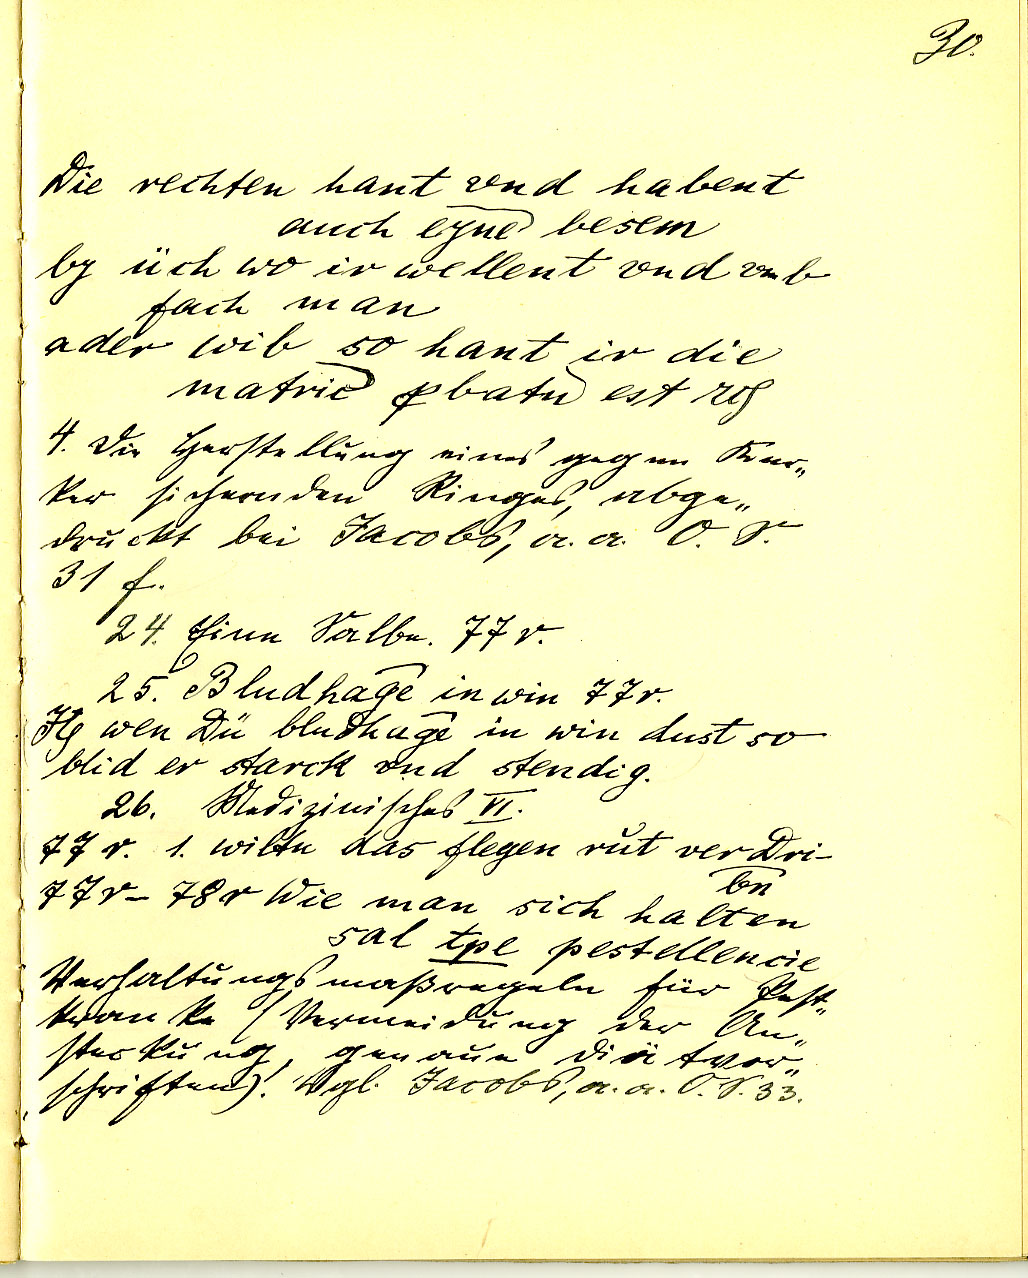 30.
Die rechten hant vnd habent
auch eyne besem
by üch wo ir wellent vnd vmb
fach man
ader wib so hant ir die
matric pbatu est
4. Die Herstellung eines gegen Ker„
ker sichernden Ringes, abge„
druckt bei Jacobs, a. a. O. S.
31 f.
24. Eine Salbe. 77 r.
25. Bludhage in win 77r.
wen Dü bludhage in win dust so
blid er starck vnd stendig.
26. Medizinisches VI.
77 r. 1. wiltu das flegen rut ver Dri-
bn
77r – 78r Wie man sich halten
sal tpe pestellencie
Verhaltungsmaßregeln für Pest„
kranke (Vermeidung der An„
steckung, genaue Diätvor„
schriften). Vgl. Jacobs, a. a. O. S. 33.